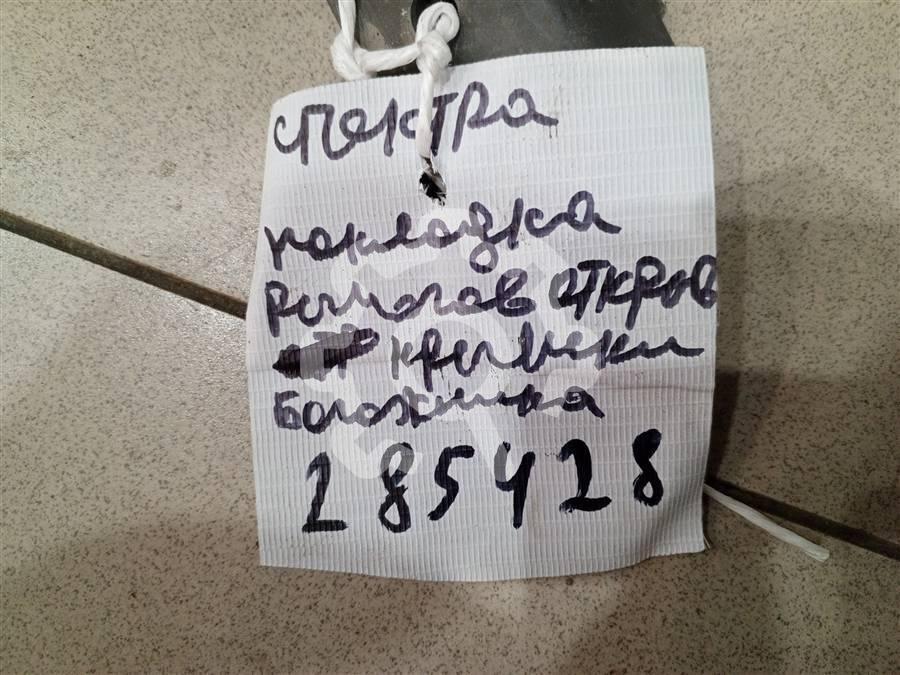 спектра
накладка
рычагов откров
крышки
богожника
285428